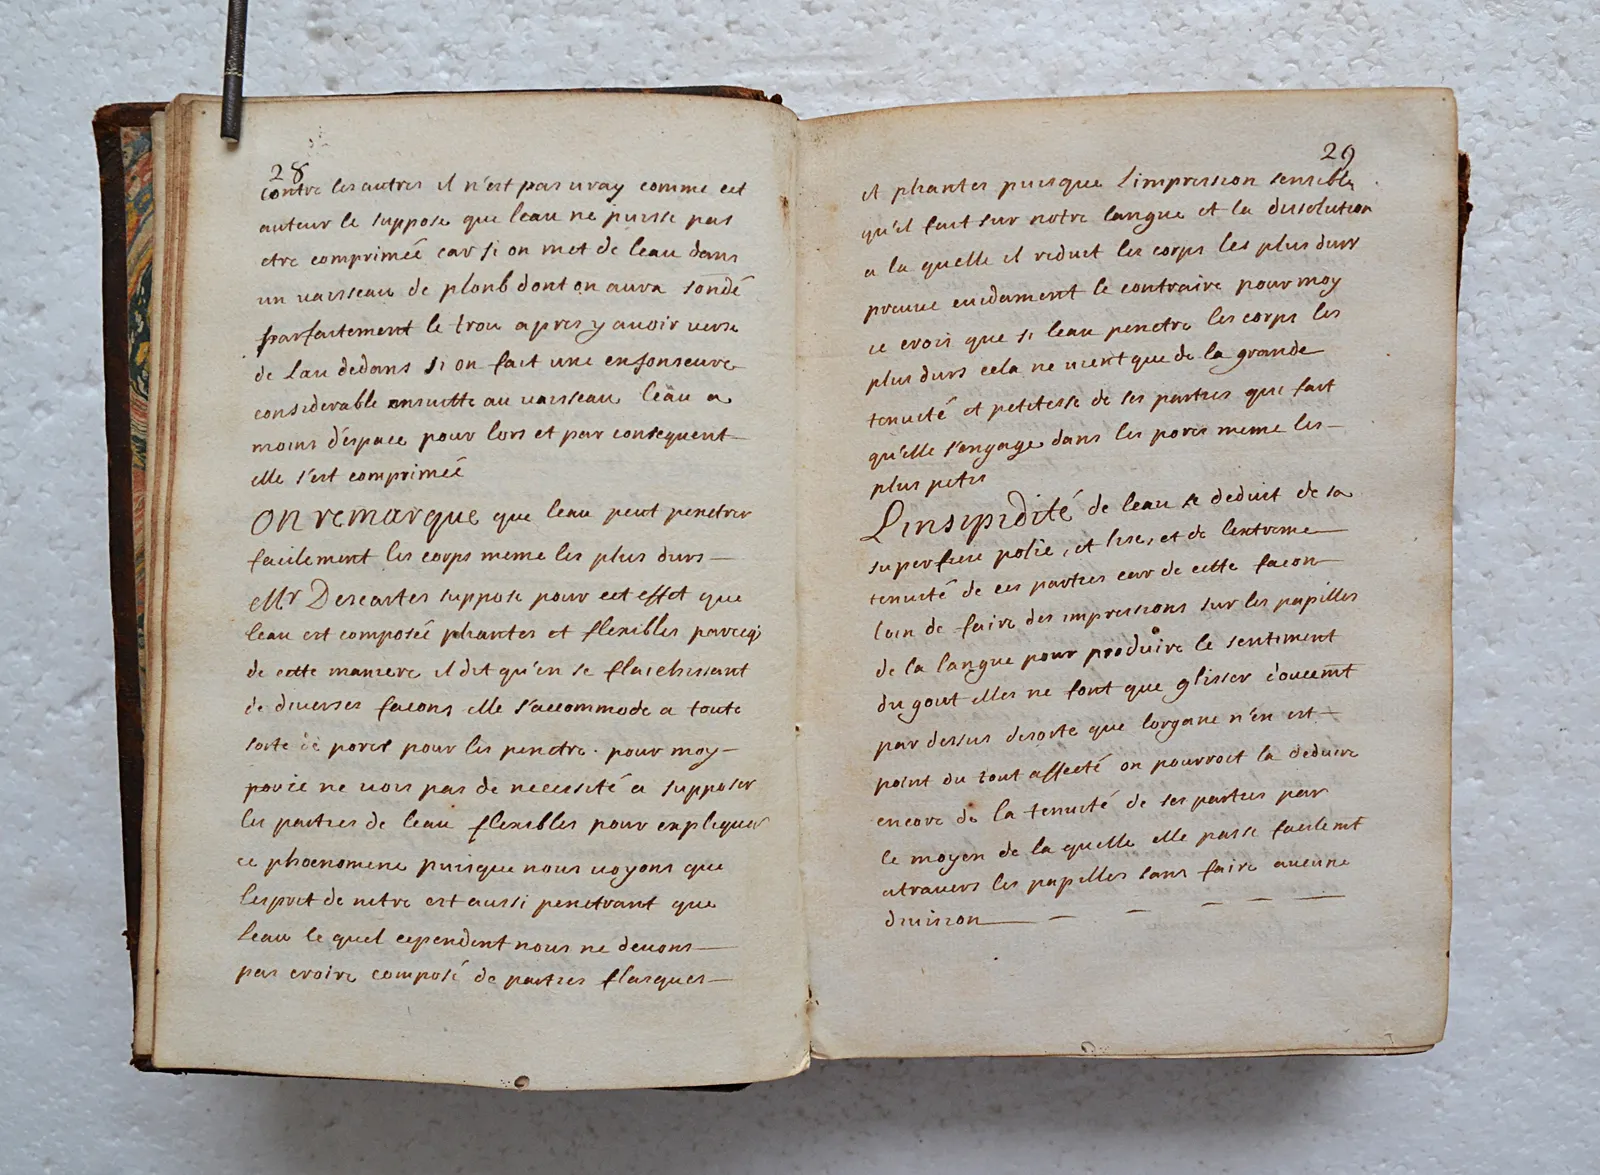 28
contre les autres il n'est pas uray comme cet
auteur le suppose que leau ne puisse pas
etre comprimeé car si on met de leau dans
un uaisseau de plonb dont on aura sondé
parfaitement le trou apres y auoir uerse
de lau dedans si on fait une enfonseure
considerable ensuitte au uaisseau leau a
moins d'espace pour lors et par consequent
elle s'est comprimeé
On remarque que leau peut penetrer
facilement les corps meme les plus durs
Mr Descartes suppose pour cet effet que
leau est composeé pliantes et flexibles parceq'
de cette maniere il dit qu'en se flaichissant
de diuerses facons elle s'accommode a toute
sorte de pores pour les penetre. pour moy
je ne uois pas de necessité a supposer
les parties de leau flexibles pour expliquer
ce phoenomene puisque nous uoyons que
lesprit de nitre est aussi penetrant que
leau le quel cependent nous ne deuons
pas croire composé de parties flasques
29
et pliantes puisque l'impression sensible
qu'il fait sur notre langue et la dissolution
a la quelle il reduit les corps les plus durs
preuue euidament le contraire pour moy
ie crois que si leau penetre les corps les
plus durs cela ne uient que de la grande
tenuité et petitesse de ses parties qui fait
qu'elle s'engage dans les pores meme les
plus petis
L'insipidité de leau se deduit de sa
superficie polie, et lise, et de lextreme
tenuité de ces parties car de cette facon
loin de faire des impressions sur les papilles
de la langue pour produire le sentiment
du gout elles ne font que glisser doucemt
par dessus desorte que lorgane n'en est
point du tout affecté on pourroit la deduire
encore de la tenuité de ses parties par
le moyen de la quelle elle passe facilemt
atrauers les papilles sans faire aucune
diuision